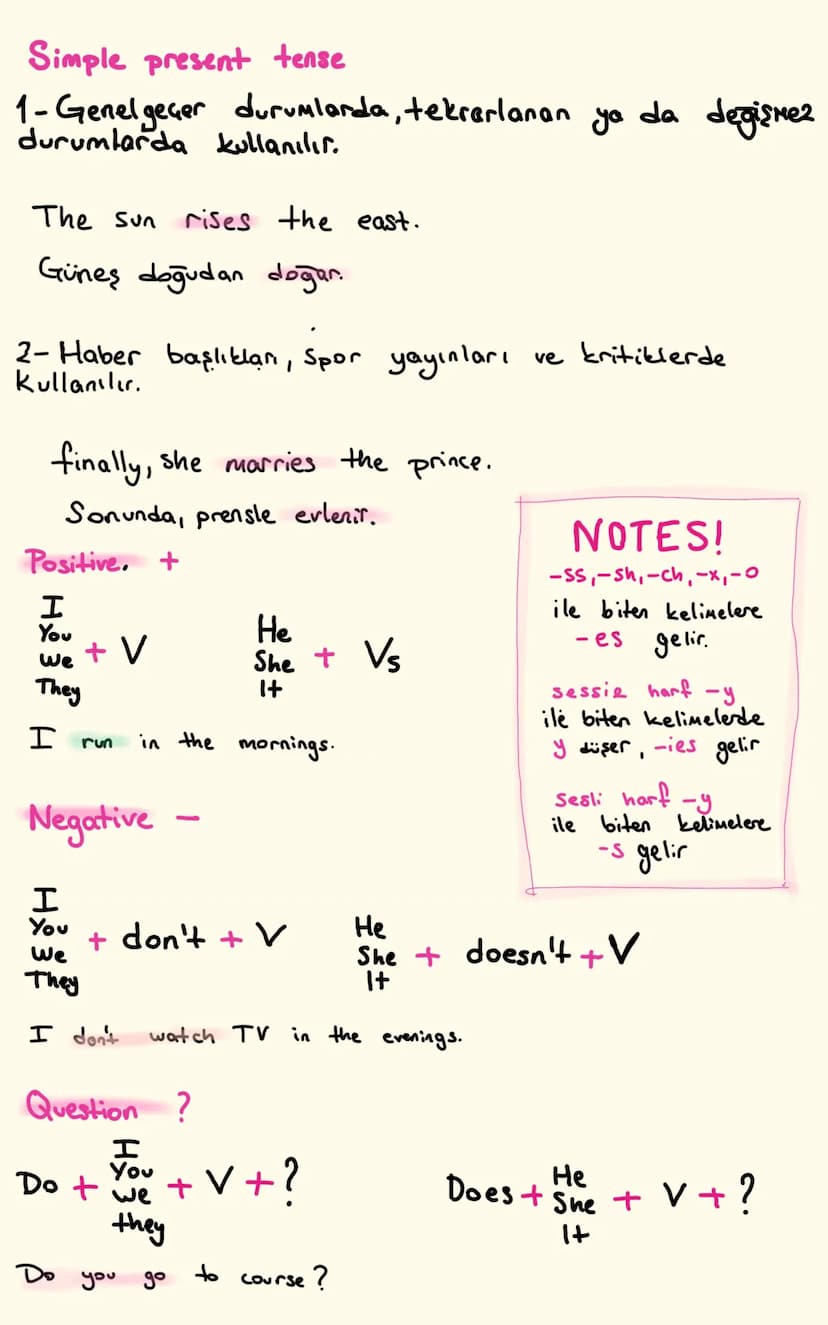 Simple present tense
1-Genelgeçer durumlarda, tekrarlanan ya da değişmez
durumlarda kullanılır.
The sun rises the east.
Güneş doğudan doğar.
2-Haber başlıkları, Spor yayınları ve kritiklerde
Kullanılır.
finally, she marries the prince.
Sonunda, prensle evlenir.
Positive. +
I
You
we
They
+ V
He
She
It
+ Vs
I run in the mornings.
NOTES!
-ss,-sh,-ch,-x,-o
ile biten kelimelere
-es gelir.
sessiz harf -y
ile biten kelimelerde
y düşer, -ies gelir
Sesli harf -y
ile biten kelimelere
-s gelir
Negative -
I
You
we
They
+ don't + V
He
She
It
+ doesn't + V
I don't watch TV in the evenings.
Question ?
Do +
I
You
we
they
+ V + ?
Does +
He
She
It
+ V + ?
Do you go to course?